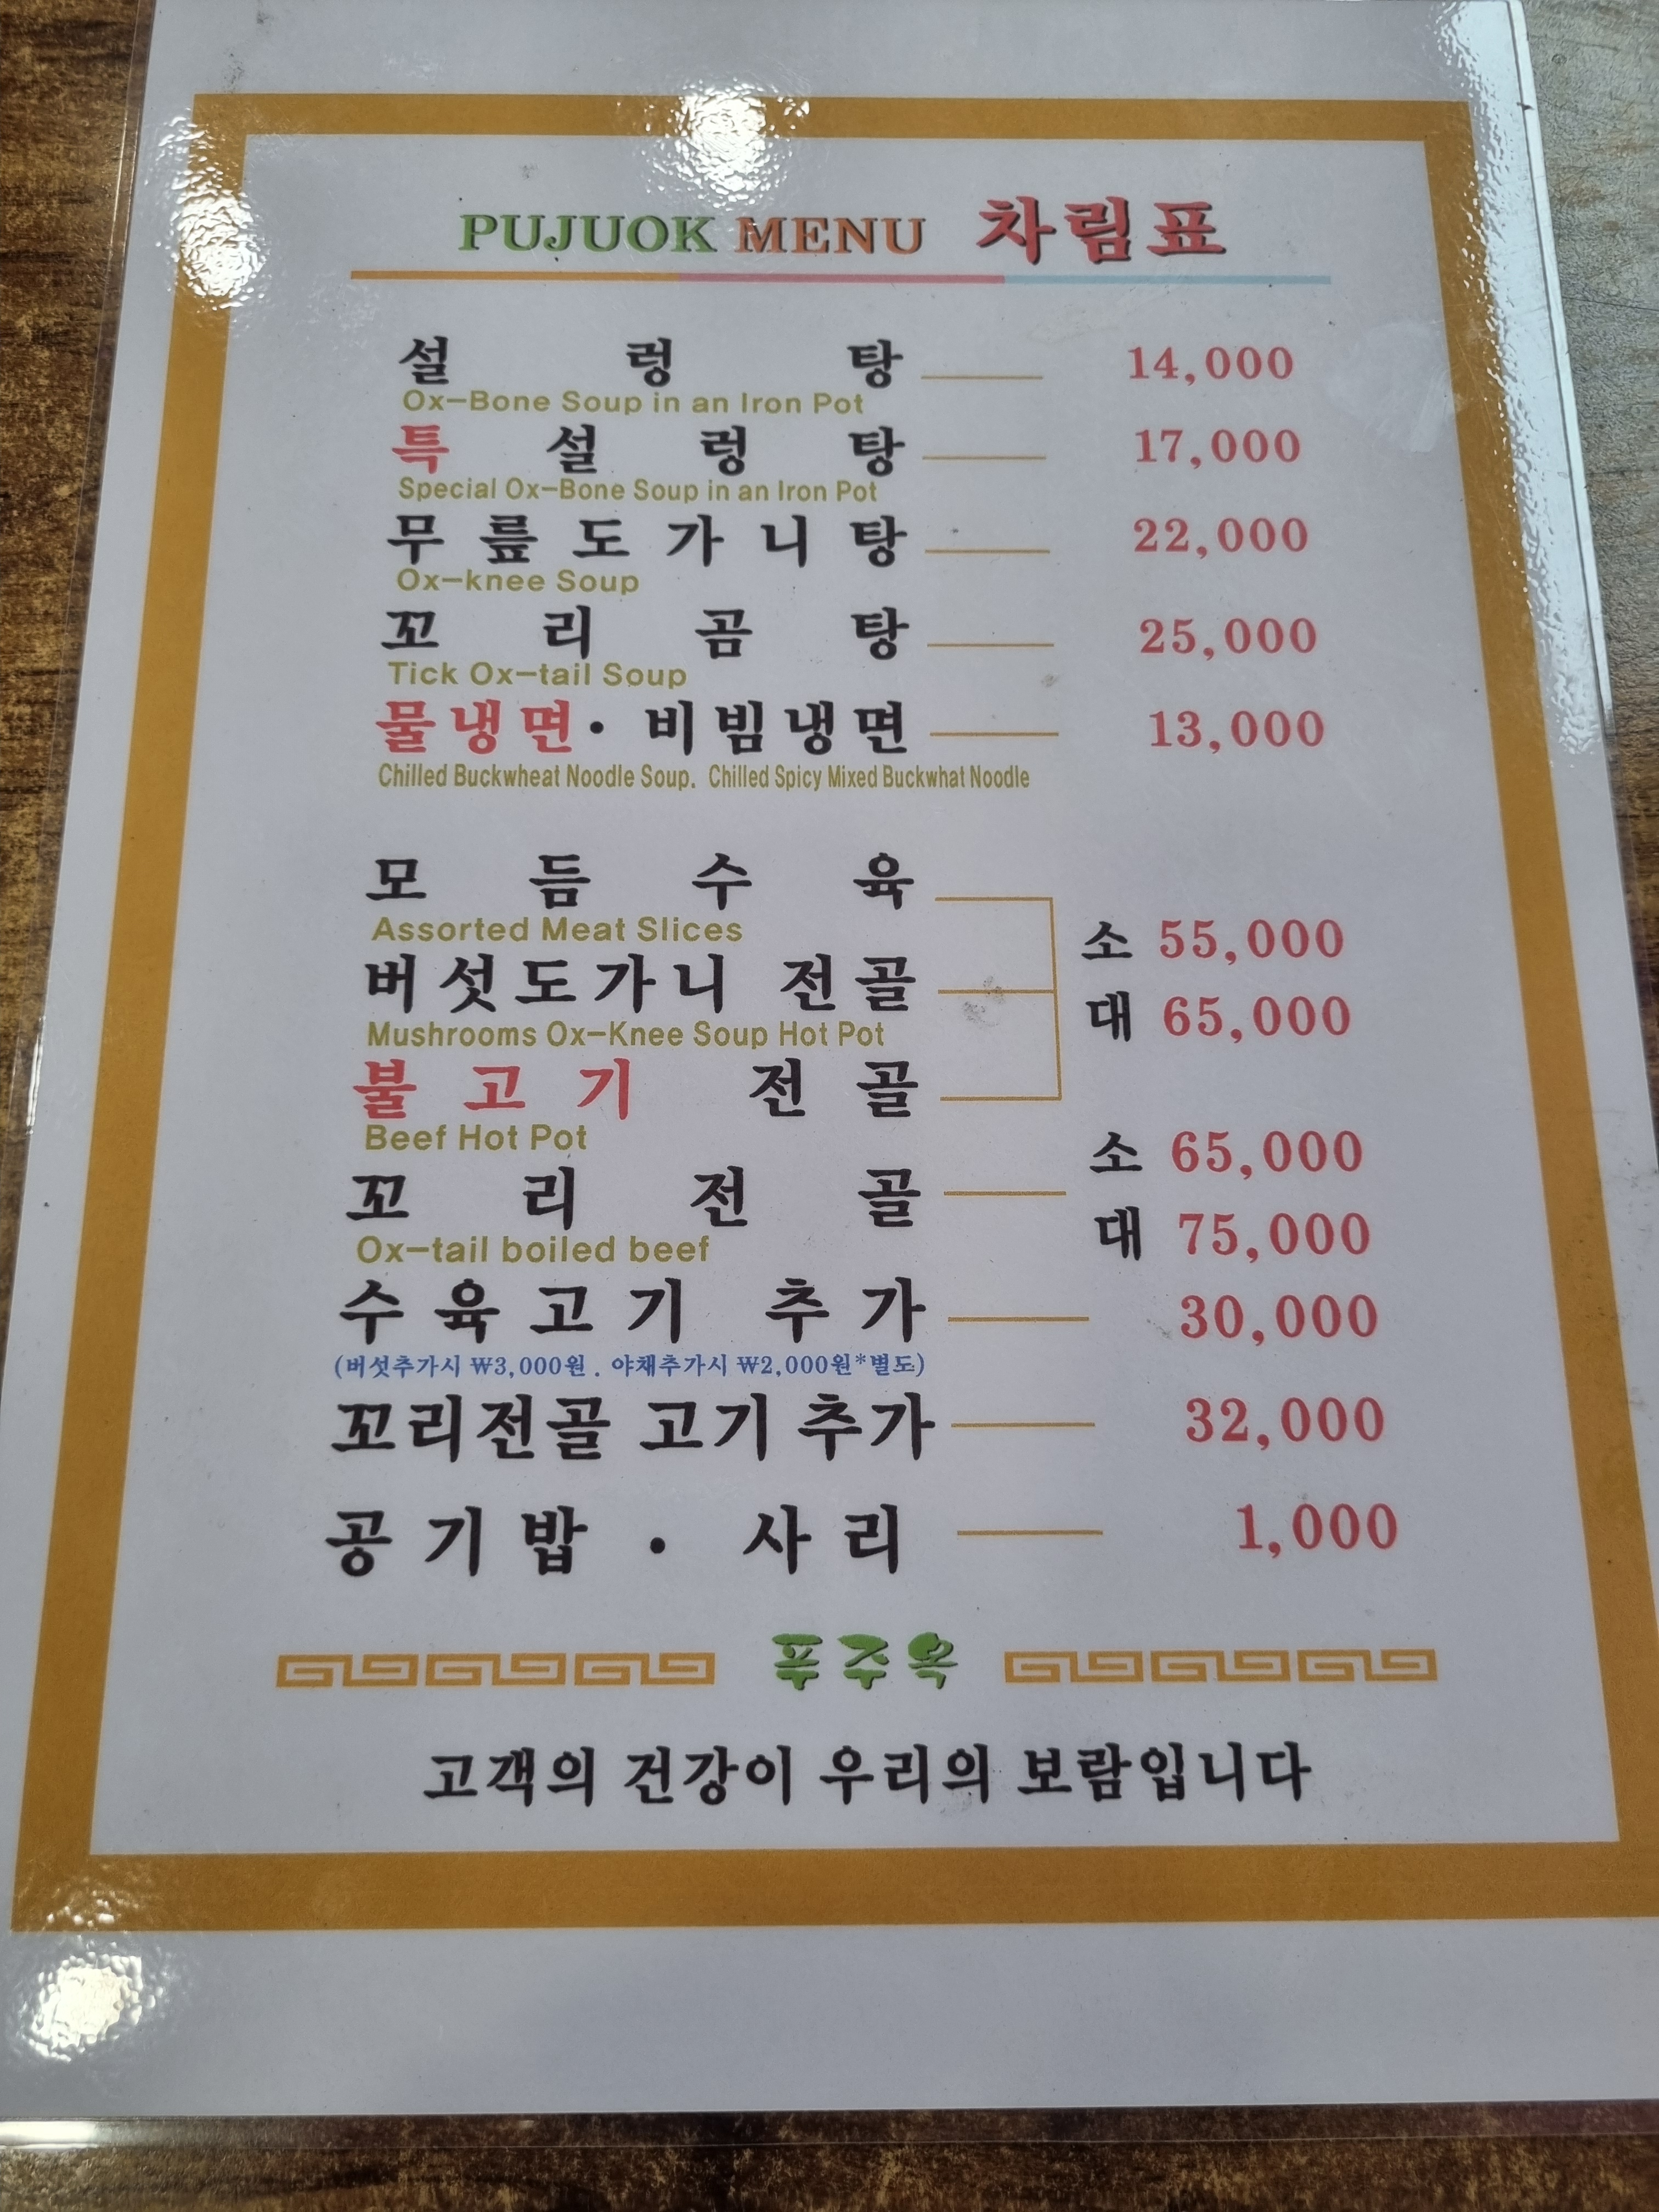 PUJUOK MENU 차림표
설렁탕 14,000
Ox-Bone Soup in an Iron Pot
특설렁탕 17,000
Special Ox-Bone Soup in an Iron Pot
무릎도가니탕 22,000
Ox-knee Soup
꼬리곰탕 25,000
Tick Ox-tail Soup
물냉면·비빔냉면 13,000
Chilled Buckwheat Noodle Soup. Chilled Spicy Mixed Buckwhat Noodle
모듬수육
Assorted Meat Slices
소 55,000
버섯도가니 전골
대 65,000
Mushrooms Ox-Knee Soup Hot Pot
불고기 전골
Beef Hot Pot
소 65,000
꼬리전골
대 75,000
Ox-tail boiled beef
수육고기 추가 30,000
(버섯추가시 ₩3,000원. 야채추가시 ₩2,000원*별도)
꼬리전골 고기 추가 32,000
공기밥 · 사리 1,000
푸주옥
고객의 건강이 우리의 보람입니다